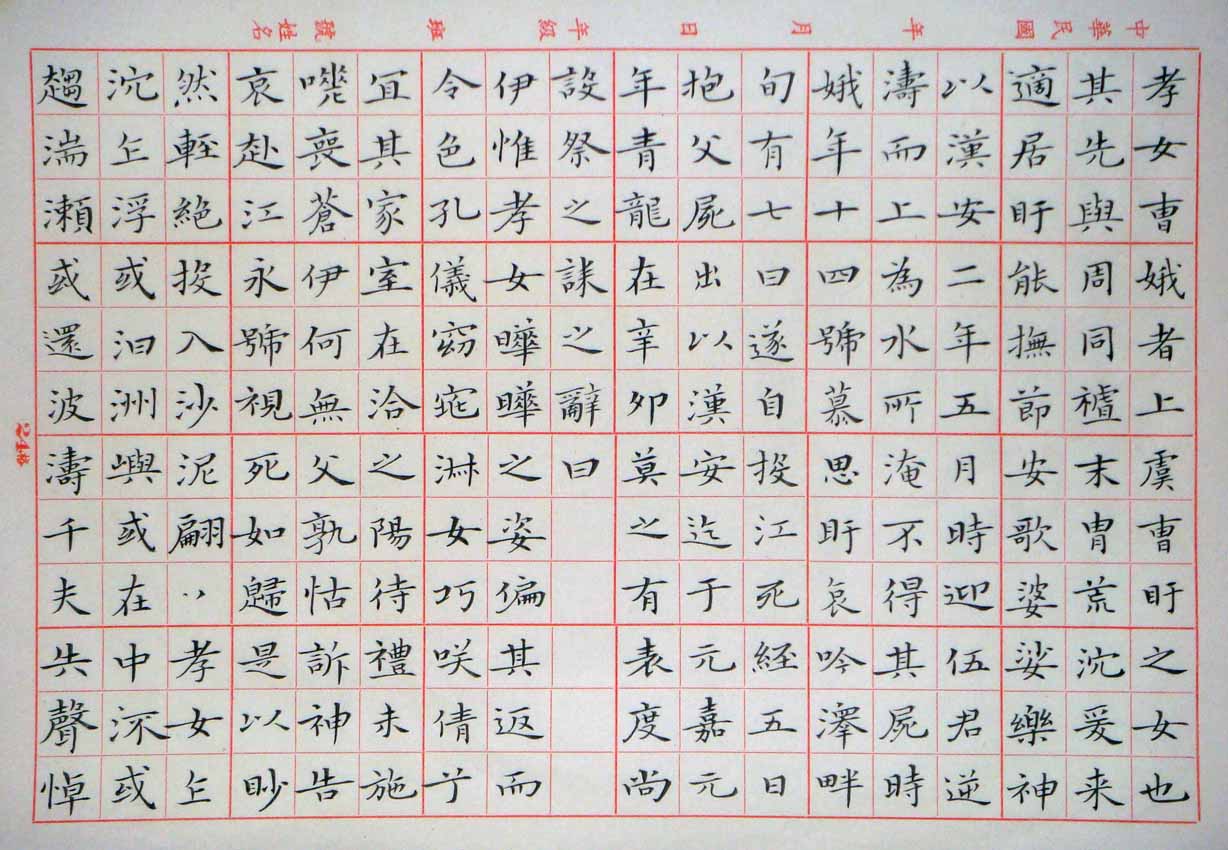 中華民國 年 月 日 年級 班 號 姓名
孝女曹娥者上虞曹盱之女也
其先與周同櫨末冑荒沈爰来
適居盱能撫節安歌婆娑樂神
以漢安二年五月時迎伍君逆
濤而上為水所淹不得其屍時
娥年十四號慕思盱哀吟澤畔
旬有七日遂自投江死經五日
抱父屍出以漢安迄于元嘉元
年青龍在辛卯莫之有表度尚
設祭之誄之辭曰
伊惟孝女曄曄之姿偏其返而
令色孔儀窈窕淋女巧咲倩兮
宜其家室在洽之陽待禮未施
嗟喪蒼伊何無父孰怙訴神告
哀赴江永號視死如歸是以眇
然輕絕投入沙泥翩〻孝女乍
沉乍浮或泊洲嶼或在中流或
趨湍瀨或還波濤千夫失聲悼